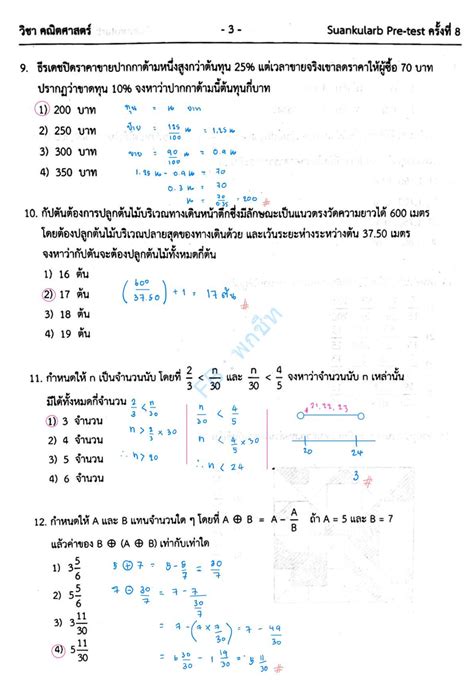 วิชา คณิตศาสตร์ - 3 - Suankularb Pre-test ครั้งที่ 8
9. ธีรเดชปิดราคาขายปากกาด้ามหนึ่งสูงกว่าต้นทุน 25% แต่เวลาขายจริงเขาลดราคาให้ผู้ซื้อ 70 บาท
ปรากฏว่าขาดทุน 10% จงหาว่าปากกาด้ามนี้ต้นทุนกี่บาท
1) 200 บาท
2) 250 บาท
3) 300 บาท
4) 350 บาท
10. กัปตันต้องการปลูกต้นไม้บริเวณทางเดินหน้าตึกซึ่งมีลักษณะเป็นแนวตรงวัดความยาวได้ 600 เมตร
โดยต้องปลูกต้นไม้บริเวณปลายสุดของทางเดินด้วย และเว้นระยะห่างระหว่างต้น 37.50 เมตร
จงหาว่ากัปตันจะต้องปลูกต้นไม้ทั้งหมดกี่ต้น
1) 16 ต้น
2) 17 ต้น (600/37.50) + 1 = 17 ต้น #
3) 18 ต้น
4) 19 ต้น
11. กำหนดให้ n เป็นจำนวนนับ โดยที่ 2/3 < n/30 และ n/30 < 4/5 จงหาว่าจำนวนนับ n เหล่านั้น
มีได้ทั้งหมดกี่จำนวน 2/3 < n/30 n/30 < 4/5 21, 22, 23
1) 3 จำนวน n > 2/3 × 30 n < 4/5 × 30
2) 4 จำนวน
3) 5 จำนวน ∴ n > 20 ∴ n < 24 20 24
4) 6 จำนวน 3 #
12. กำหนดให้ A และ B แทนจำนวนใด ๆ โดยที่ A ⊕ B = A − A/B ถ้า A = 5 และ B = 7
แล้วค่าของ B ⊕ (A ⊕ B) เท่ากับเท่าใด
1) 3 5/6 5 ⊕ 7 = 5 − 5/7 = 30/7
2) 5 5/6
3) 3 11/30
4) 5 11/30